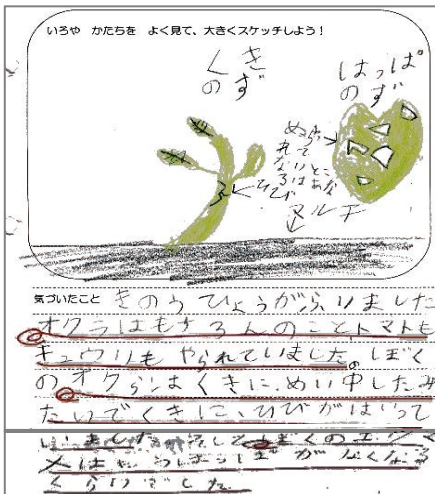 いろや　かたちを　よく見て、大きくスケッチしよう！
くきのきず
はっぱのず
ぬらっていないところはあな
ひび
マルチ
気づいたこと
きのうひょうがふりました
オクラはもちろんのこと、トマトも
キュウリもやられていました。ぼく
のオクラはくきに、めい中したみ
たいでくきに、ひびがはいって
いました
くらいでした